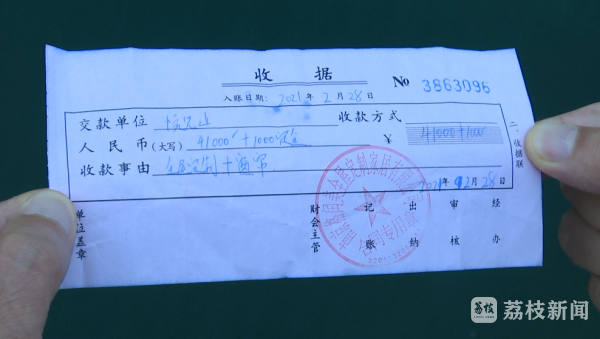 收据
No 3863096
入账日期：2021年2月28日
交款单位 收款方式
人民币(大写) 41000+1000定金 ¥ 41000+1000
收款事由 全屋定制+窗帘
2021年2月28日
二、收据联
单位盖章 财会主管 记账 出纳 审核 经办
合同专用章
荔枝 荔枝新闻